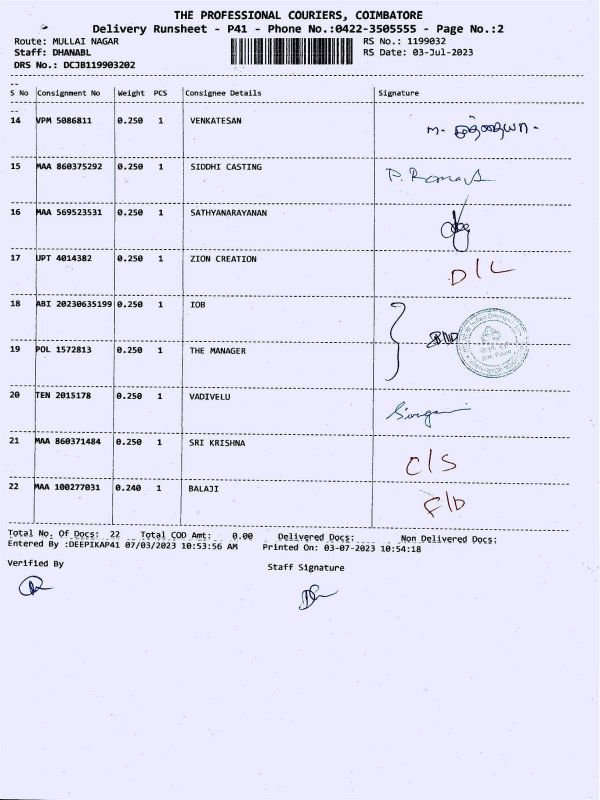 THE PROFESSIONAL COURIERS, COIMBATORE
Delivery Runsheet - P41 - Phone No.:0422-3505555 - Page No.:2
Route: MULLAI NAGAR RS No.: 1199032
Staff: DHANABL RS Date: 03-Jul-2023
DRS No.: DCJB119903202
S No Consignment No Weight PCS Consignee Details Signature
14 VPM 5086811 0.250 1 VENKATESAN
15 MAA 860375292 0.250 1 SIDDHI CASTING
16 MAA 569523531 0.250 1 SATHYANARAYANAN
17 UPT 4014382 0.250 1 ZION CREATION D/L
18 ABI 20230635199 0.250 1 IOB
19 POL 1572813 0.250 1 THE MANAGER
20 TEN 2015178 0.250 1 VADIVELU
21 MAA 860371484 0.250 1 SRI KRISHNA C/S
22 MAA 100277031 0.240 1 BALAJI
Total No. Of Docs: 22 Total COD Amt: 0.00 Delivered Docs: Non Delivered Docs:
Entered By :DEEPIKAP41 07/03/2023 10:53:56 AM Printed On: 03-07-2023 10:54:18
Verified By Staff Signature